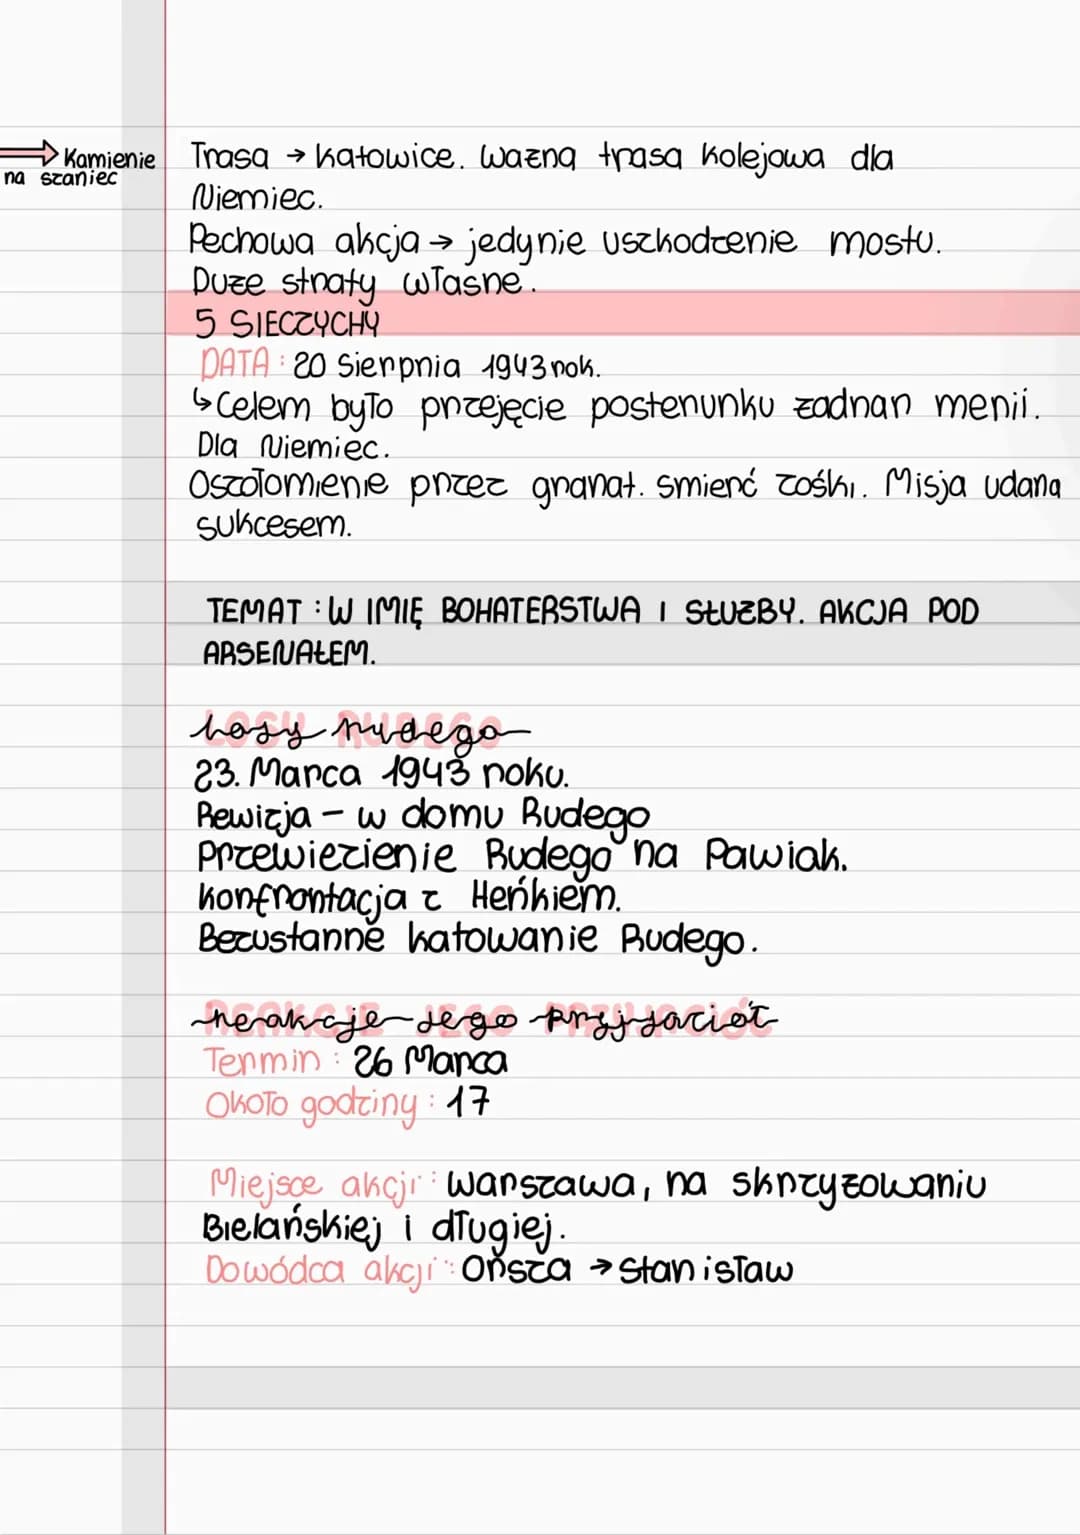 Kamienie
na szaniec
Trasa → Katowice. Ważną trasa kolejowa dla
Niemiec.
Pechowa akcja → jedynie uszkodzenie mostu.
Duże straty własne.
5 SIECZYCHY
DATA: 20 Sierpnia 1943 rok.
↳ Celem było przejęcie posterunku żadnar merii.
Dla Niemiec.
Oszołomienie przez granat. Smierć Zośki. Misja udana
sukcesem.
TEMAT: W IMIĘ BOHATERSTWA I SŁUŻBY. AKCJA POD
ARSENAŁEM.
Losy Rudego
23. Marca 1943 roku.
Rewizja - w domu Rudego
Przewiezienie Rudego na Pawiak.
Konfrontacja z Heńkiem.
Bezustanne katowanie Rudego.
Reakcje Jego Przyjaciół
Termin: 26 Marca
Około godziny: 17
Miejsce akcji: Warszawa, na skrzyżowaniu
Bielańskiej i długiej.
Dowódca akcji: Orsza → Stanisław